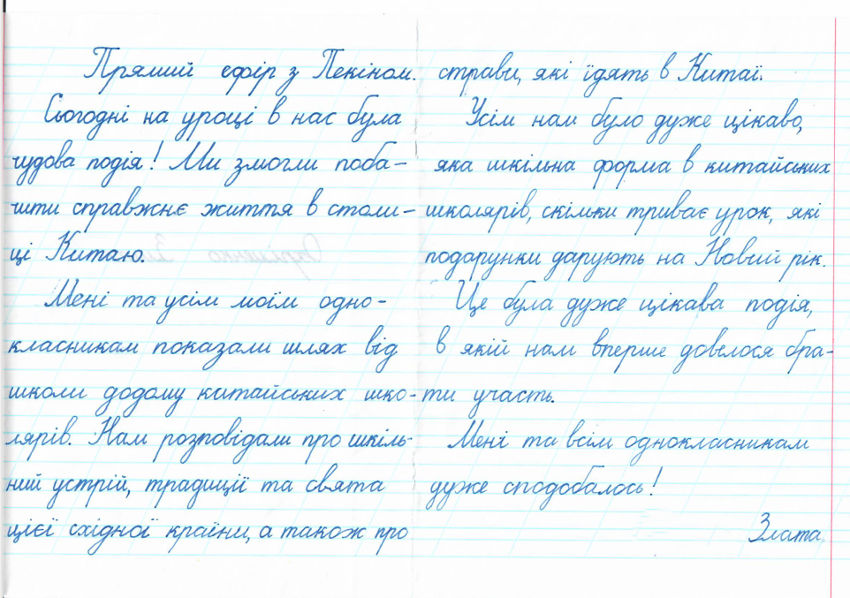 Прямий ефір з Пекіном.
Сьогодні на уроці в нас була
чудова подія! Ми змогли поба-
чити справжнє життя в столи-
ці Китаю.
Мені та усім моїм одно-
класникам показали шлях від
школи додому китайських шко-
лярів. Нам розповідали про шкіль-
ний устрій, традиції та свята
цієї східної країни, а також про
страви, які їдять в Китаї.
Усім нам було дуже цікаво,
яка шкільна форма в китайських
школярів, скільки триває урок, які
подарунки дарують на Новий рік.
Це була дуже цікава подія,
в якій нам вперше довелося бра-
ти участь.
Мені та всім однокласникам
дуже сподобалось!
Злата